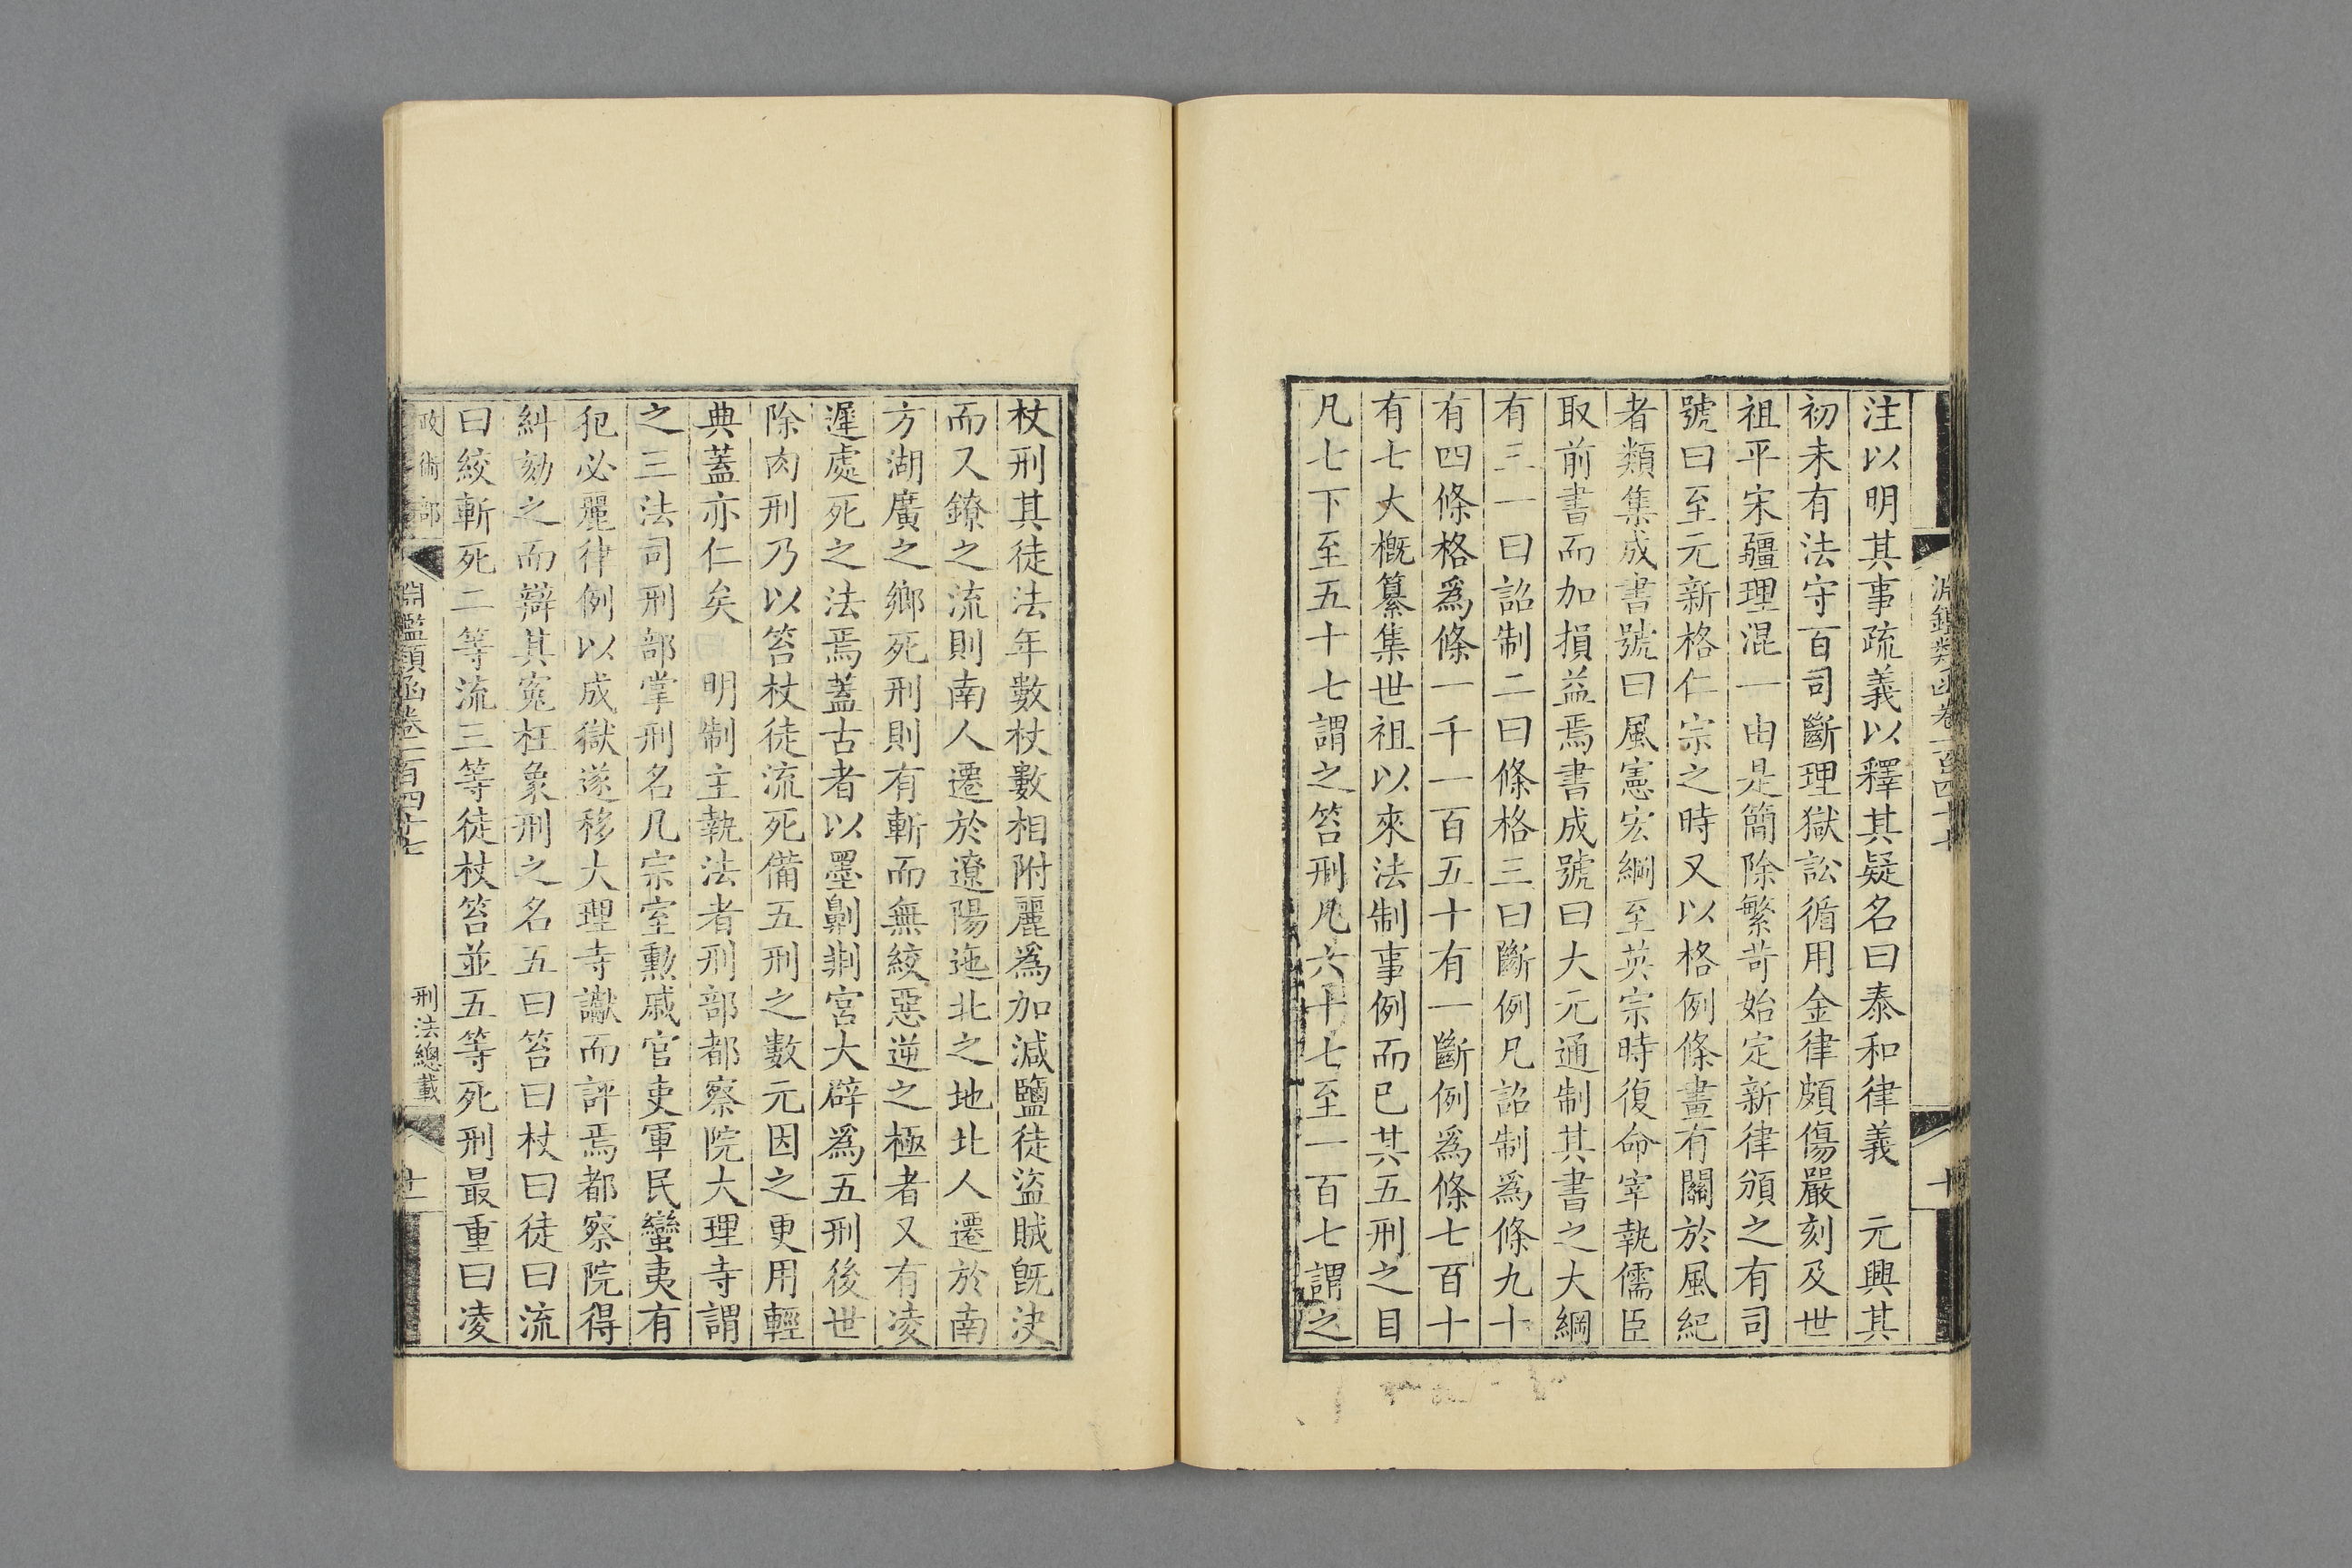 淵鑑類函卷一百四十七
十
注以明其事疏義以釋其疑名曰泰和律義　元興其
初未有法守百司斷理獄訟循用金律頗傷嚴刻及世
祖平宋疆理混一由是簡除繁苛始定新律頒之有司
號曰至元新格仁宗之時又以格例條畫有關於風紀
者類集成書號曰風憲宏綱至英宗時復命宰執儒臣
取前書而加損益焉書成號曰大元通制其書之大綱
有三一曰詔制二曰條格三曰斷例凡詔制為條九十
有四條格爲條一千一百五十有一斷例爲條七百十
有七大概纂集世祖以來法制事例而已其五刑之目
凡七下至五十七謂之笞刑凡六十七至一百七謂之
杖刑其徒法年數杖數相附麗爲加減鹽徒盜賊既決
而又鐐之流則南人遷於遼陽迤北之地北人遷於南
方湖廣之鄉死刑則有斬而無絞惡逆之極者又有凌
遲處死之法焉蓋古者以墨劓剕宮大辟爲五刑後世
除肉刑乃以笞杖徒流死備五刑之數元因之更用輕
典蓋亦仁矣　明制主執法者刑部都察院大理寺謂
之三法司刑部掌刑名凡宗室勳戚官吏軍民蠻夷有
犯必麗律例以成獄遂移大理寺讞而評焉都察院得
糾劾之而辯其寃枉象刑之名五曰笞曰杖曰徒曰流
曰絞斬死二等流三等徒杖笞並五等死刑最重曰凌
政術部
淵鑑類函卷一百四十七
刑法總載
十一